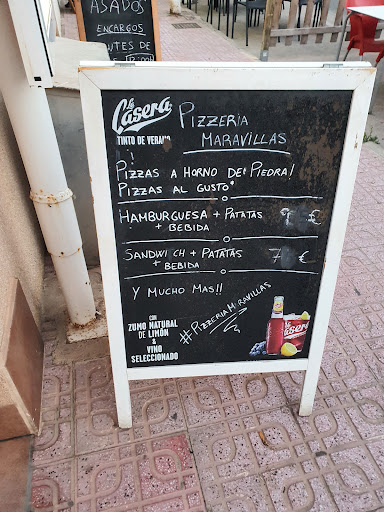 ASADOS
ENCARGOS
ANTES DE
La Casera
TINTO DE VERANO
PIZZERIA
MARAVILLAS
¡PIZZAS A HORNO DE PIEDRA!
PIZZAS AL GUSTO"
HAMBURGUESA + PATATAS 9 €
+ BEBIDA
SANDWICH + PATATAS 7 €
+ BEBIDA
Y MUCHO MAS!!
CON
ZUMO NATURAL
DE LIMÓN
&
VINO
SELECCIONADO
#PIZZERIAMARAVILLAS
La Casera